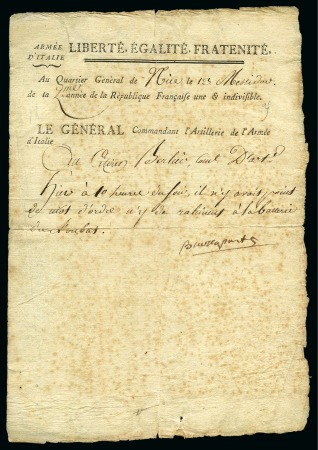 ARMÉE
D'ITALIE
LIBERTÉ. ÉGALITÉ. FRATENITÉ.
Au Quartier Général de Nice le 12 Messidor
de la 2me année de la République Française une & indivisible.
LE GÉNÉRAL Commandant l'Artillerie de l'Armée
d'Italie
Au Citoyen Berlier
hier à 10 heures du soir, il n'y avait point
de mot d'ordre n'y de à la batterie
Buonaparte